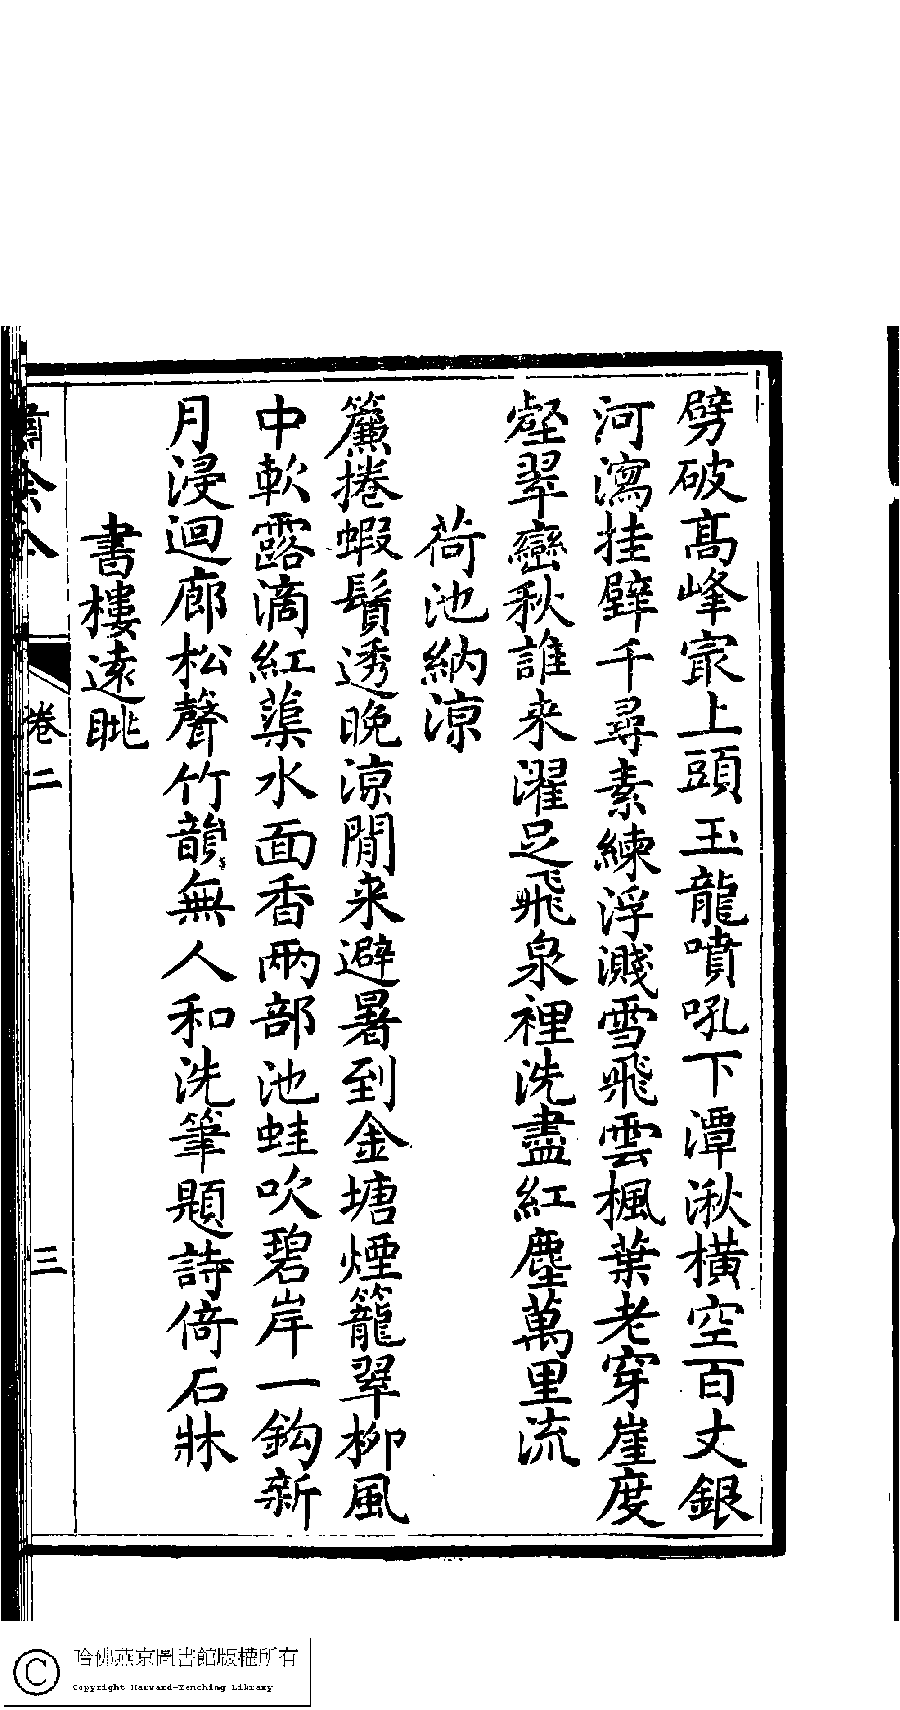 劈破高峰㝡上頭玉龍噴吼下潭湫橫空百丈銀
河瀉挂壁千尋素練浮濺雪飛雲楓葉老穿崖度
壑翠巒秋誰来濯足飛泉裡洗盡紅塵萬里流
荷池納凉
簾捲蝦鬚透晚凉閒来避暑到金塘煙籠翠柳風
中軟露滴紅蕖水面香兩部池蛙吹碧岸一鈎新
月浸迴廊松聲竹韻無人和洗筆題詩倚石牀
書樓遠眺
卷二
三
哈佛燕京圖書館版權所有
Copyright Harvard-Yenching Library